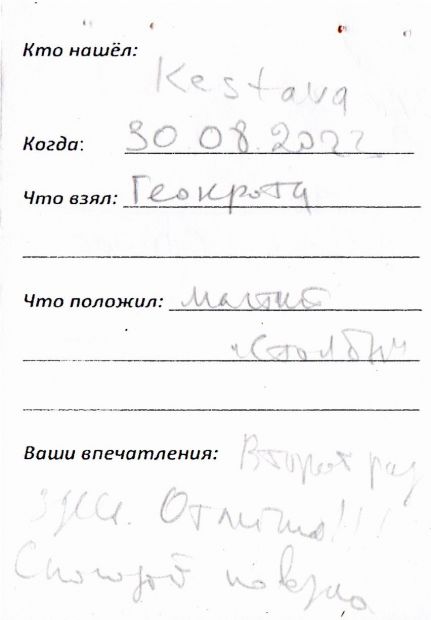 Кто нашёл:
Kestava
Когда: 30.08.2022
Что взял: Геокрота
Что положил: магнит
"Столбы"
Ваши впечатления: Второй раз
здесь. Отлично!!!
С погодой повезло